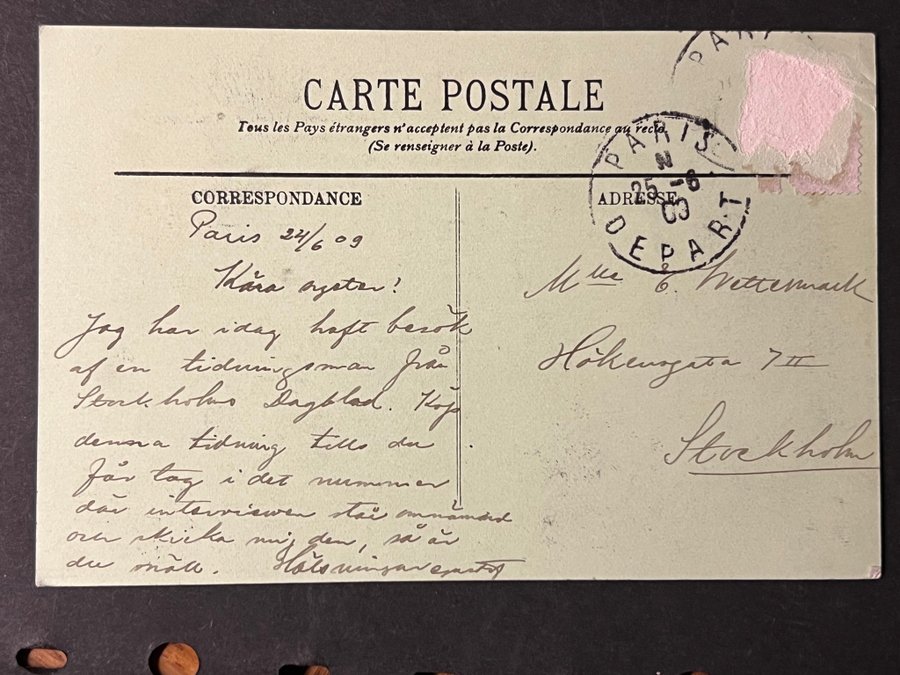 CARTE POSTALE
Tous les Pays étrangers n'acceptent pas la Correspondance au recto.
(Se renseigner à la Poste).
PARIS
N
25 -6
09
DEPART
CORRESPONDANCE
ADRESSE
Paris 24/6 09
Kära syster!
Jag har idag haft besök
af en tidningsman från
Stockholms Dagblad. Köp
denna tidning tills du
får tag i det nummer
där interviewen står omnämnd
och skicka mig den, så är
du snäll. Hälsningar
Mlle E. Wettermark
Hökensgata 7 II
Stockholm